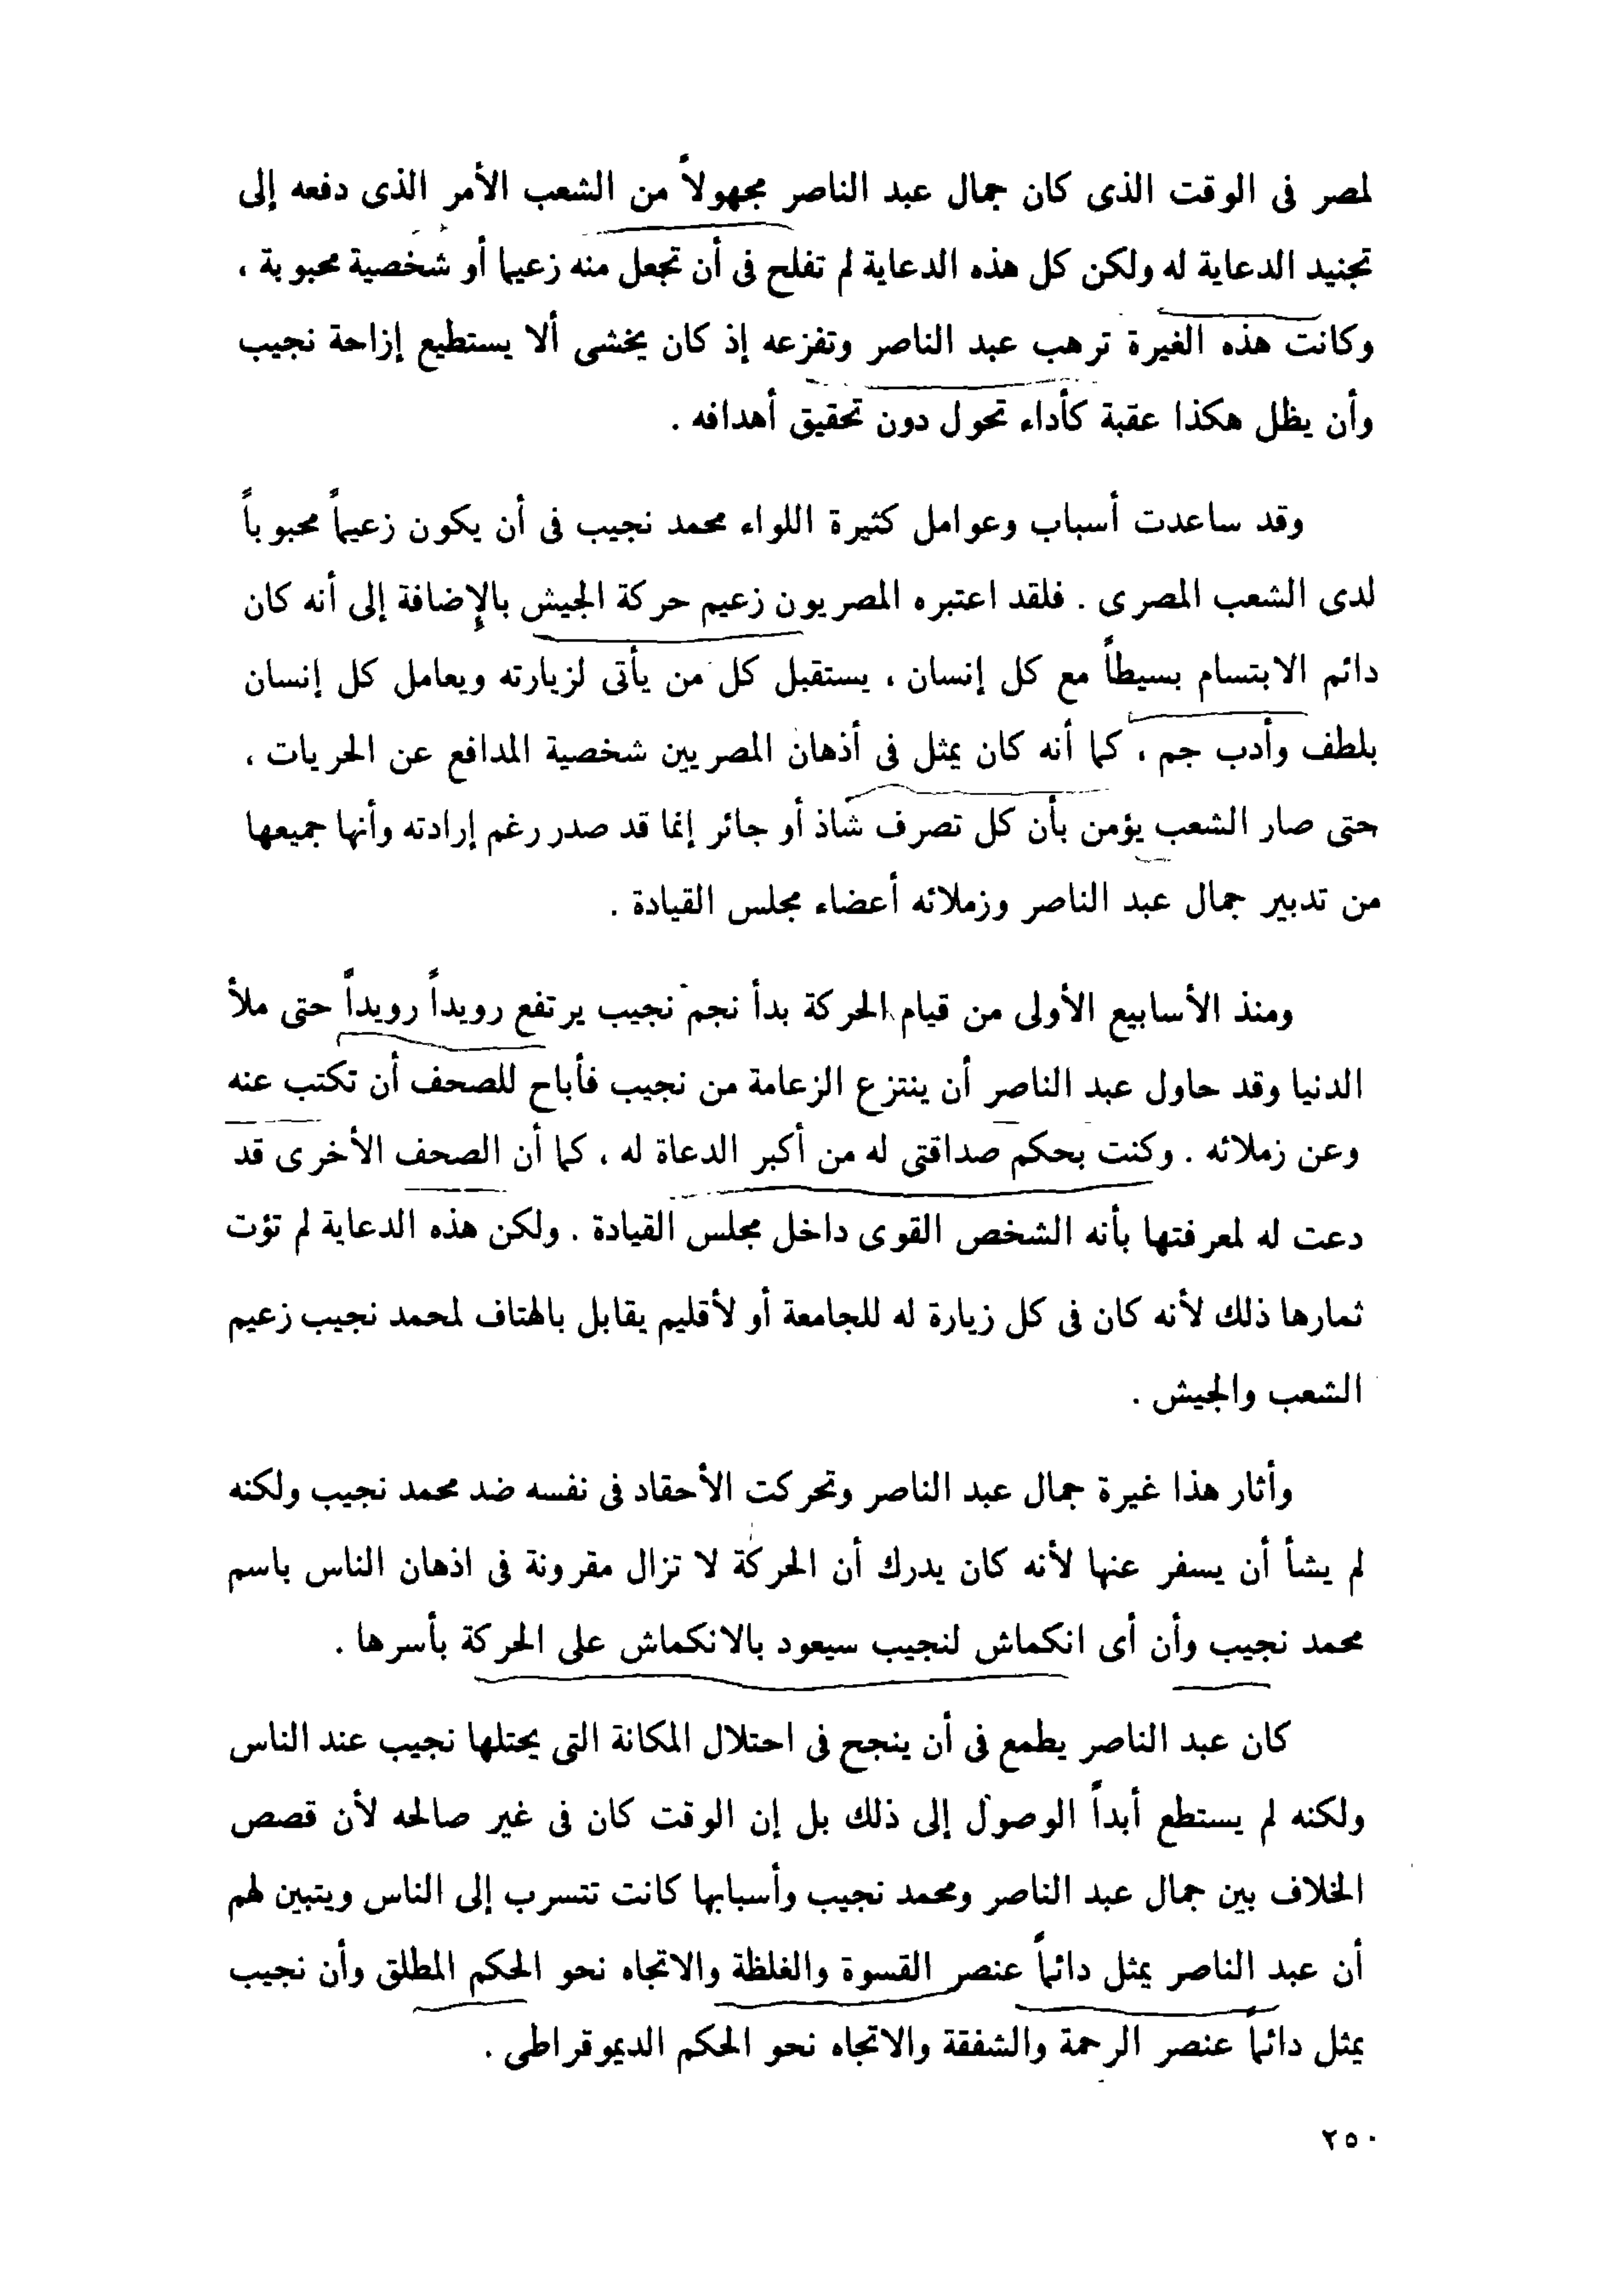 لمصر فى الوقت الذى كان جمال عبد الناصر مجهولاً من الشعب الأمر الذى دفعه إلى
تجنيد الدعاية له ولكن كل هذه الدعاية لم تفلح فى أن تجعل منه زعيما أو شخصية محبوبة ،
وكانت هذه الغيرة ترهب عبد الناصر وتفزعه إذ كان يخشى ألا يستطيع إزاحة نجيب
وأن يظل هكذا عقبة كأداء تحول دون تحقيق أهدافه .
وقد ساعدت أسباب وعوامل كثيرة اللواء محمد نجيب فى أن يكون زعيماً محبوباً
لدى الشعب المصرى . فلقد اعتبره المصريون زعيم حركة الجيش بالإضافة إلى أنه كان
دائم الابتسام بسيطاً مع كل إنسان ، يستقبل كل من يأتى لزيارته ويعامل كل إنسان
بلطف وأدب جم ، كما أنه كان يمثل فى أذهان المصريين شخصية المدافع عن الحريات ،
حتى صار الشعب يؤمن بأن كل تصرف شاذ أو جائر إنما قد صدر رغم إرادته وأنها جميعها
من تدبير جمال عبد الناصر وزملائه أعضاء مجلس القيادة .
ومنذ الأسابيع الأولى من قيام الحركة بدأ نجم نجيب يرتفع رويداً رويداً حتى ملأ
الدنيا وقد حاول عبد الناصر أن ينتزع الزعامة من نجيب فأباح للصحف أن تكتب عنه
وعن زملائه . وكنت بحكم صداقتى له من أكبر الدعاة له ، كما أن الصحف الأخرى قد
دعت له لمعرفتها بأنه الشخص القوى داخل مجلس القيادة . ولكن هذه الدعاية لم تؤت
ثمارها ذلك لأنه كان فى كل زيارة له للجامعة أو لأقليم يقابل بالهتاف لمحمد نجيب زعيم
الشعب والجيش .
وأثار هذا غيرة جمال عبد الناصر وتحركت الأحقاد فى نفسه ضد محمد نجيب ولكنه
لم يشأ أن يسفر عنها لأنه كان يدرك أن الحركة لا تزال مقرونة فى اذهان الناس باسم
محمد نجيب وأن أى انكماش لنجيب سيعود بالانكماش على الحركة بأسرها .
كان عبد الناصر يطمع فى أن ينجح فى احتلال المكانة التى يحتلها نجيب عند الناس
ولكنه لم يستطع أبداً الوصول إلى ذلك بل إن الوقت كان فى غير صالحه لأن قصص
الخلاف بين جمال عبد الناصر ومحمد نجيب وأسبابها كانت تتسرب إلى الناس ويتبين لهم
أن عبد الناصر يمثل دائماً عنصر القسوة والغلظة والاتجاه نحو الحكم المطلق وأن نجيب
يمثل دائماً عنصر الرحمة والشفقة والاتجاه نحو الحكم الديموقراطى .
٢٥٠